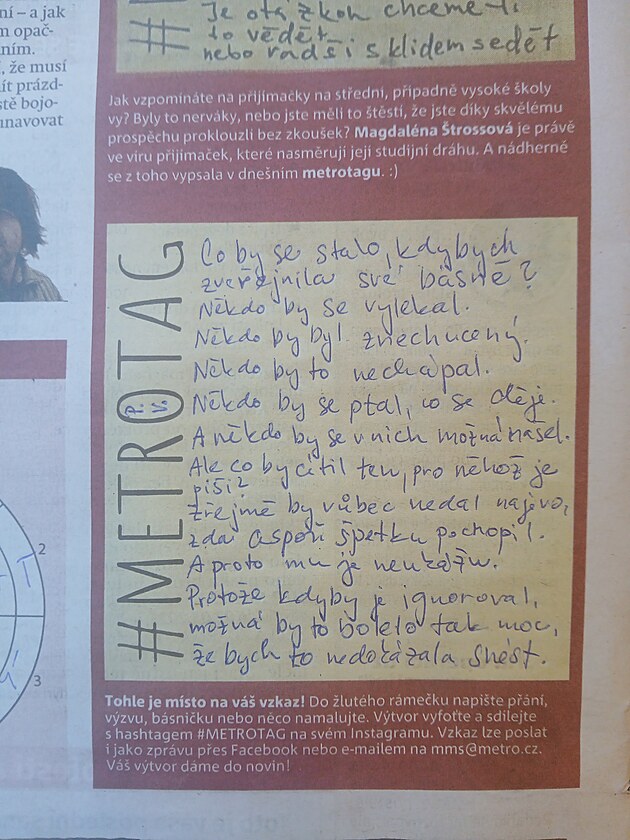 ní – a jak
n opač-
ním.
, že musí
ít prázd-
stě bojo-
unavovat
Je otázkou chceme-li
to vědět
nebo radši s klidem sedět
#
Jak vzpomínáte na přijímačky na střední, případně vysoké školy
vy? Byly to nerváky, nebo jste měli to štěstí, že jste díky skvělému
prospěchu proklouzli bez zkoušek? Magdaléna Štrossová je právě
ve víru přijímaček, které nasměrují její studijní dráhu. A nádherně
se z toho vypsala v dnešním metrotagu. :)
#METROTAG
Co by se stalo, kdybych
zveřejnila své básně?
Někdo by se vylekal.
Někdo by byl znechucený.
Někdo by to nechápal.
Někdo by se ptal, co se děje.
A někdo by se v nich možná našel.
Ale co by cítil ten, pro něhož je
píši?
Zřejmě by vůbec nedal najevo,
zda aspoň špetku pochopil.
A proto mu je neukážu.
Protože kdyby je ignoroval,
možná by to bolelo tak moc,
že bych to nedokázala snést.
Tohle je místo na váš vzkaz! Do žlutého rámečku napište přání,
výzvu, básničku nebo něco namalujte. Výtvor vyfoťte a sdílejte
s hashtagem #METROTAG na svém Instagramu. Vzkaz lze poslat
i jako zprávu přes Facebook nebo e-mailem na mms@metro.cz.
Váš výtvor dáme do novin!
2
3